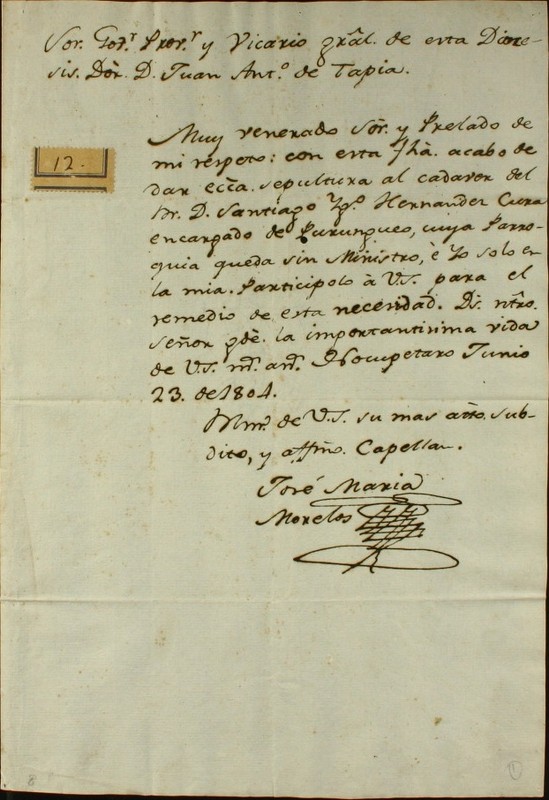 Sor. Gobr. Provr. y Vicario gral. de esta Dioce-
sis. Dōr. D. Juan Anto. de Tapia.
12.
Muy venerado Sōr. y Prelado de
mi respeto: con esta fhā. acabo de
dar eccā. sepultura al cadaver del
Br. D. Santiago Hernandez Cura
encargado de Purungueo, cuya Parro-
quia queda sin Ministro, è Yo solo en
la mia. Participolo à V.S. para el
remedio de esta necesidad. Ds. ntrō.
Señor gdē. la importantisima vida
de V.S. ms. as. Nocupetaro Junio
23. de 1804.
de V.S. su mas atto. sub-
dito, y affmo. Capellan.
José Maria
Morelos
8
1